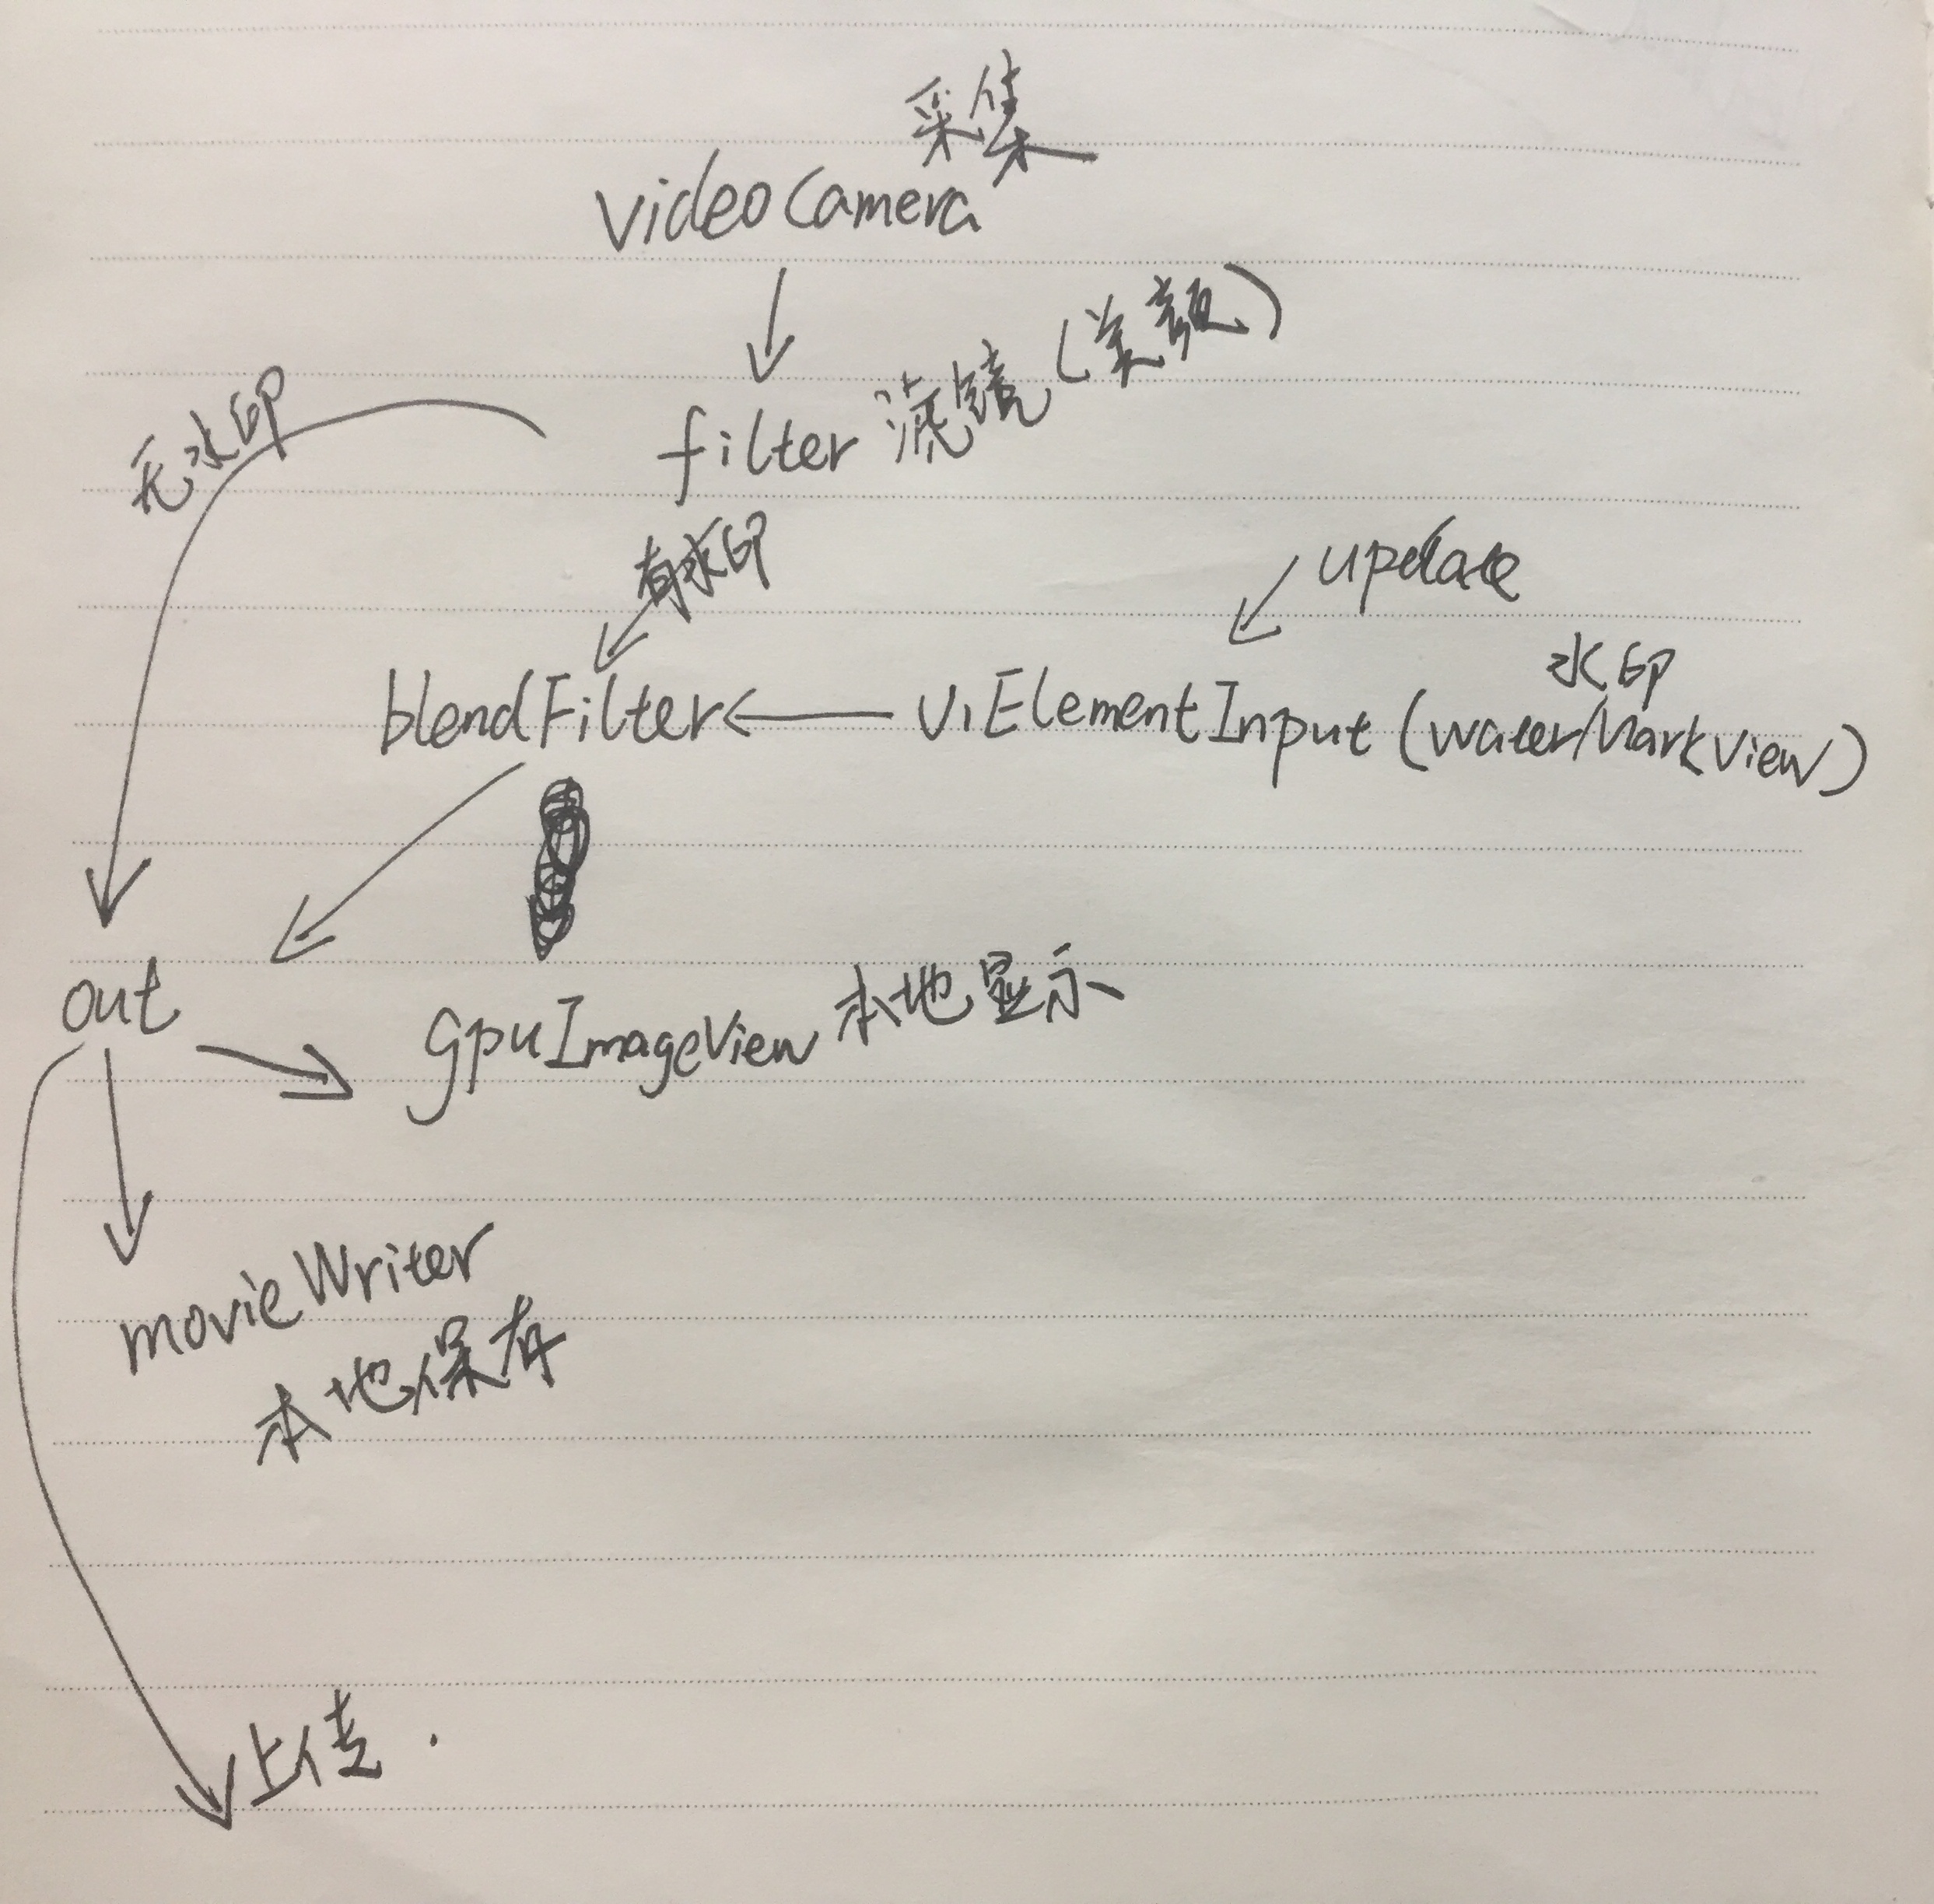 采集
videoCamera
filter 滤镜(美颜)
无水印
有水印
update
水印
blendFilter
uiElementInput (waterMarkView)
out
gpuImageView 本地显示
movieWriter
本地保存
上传.